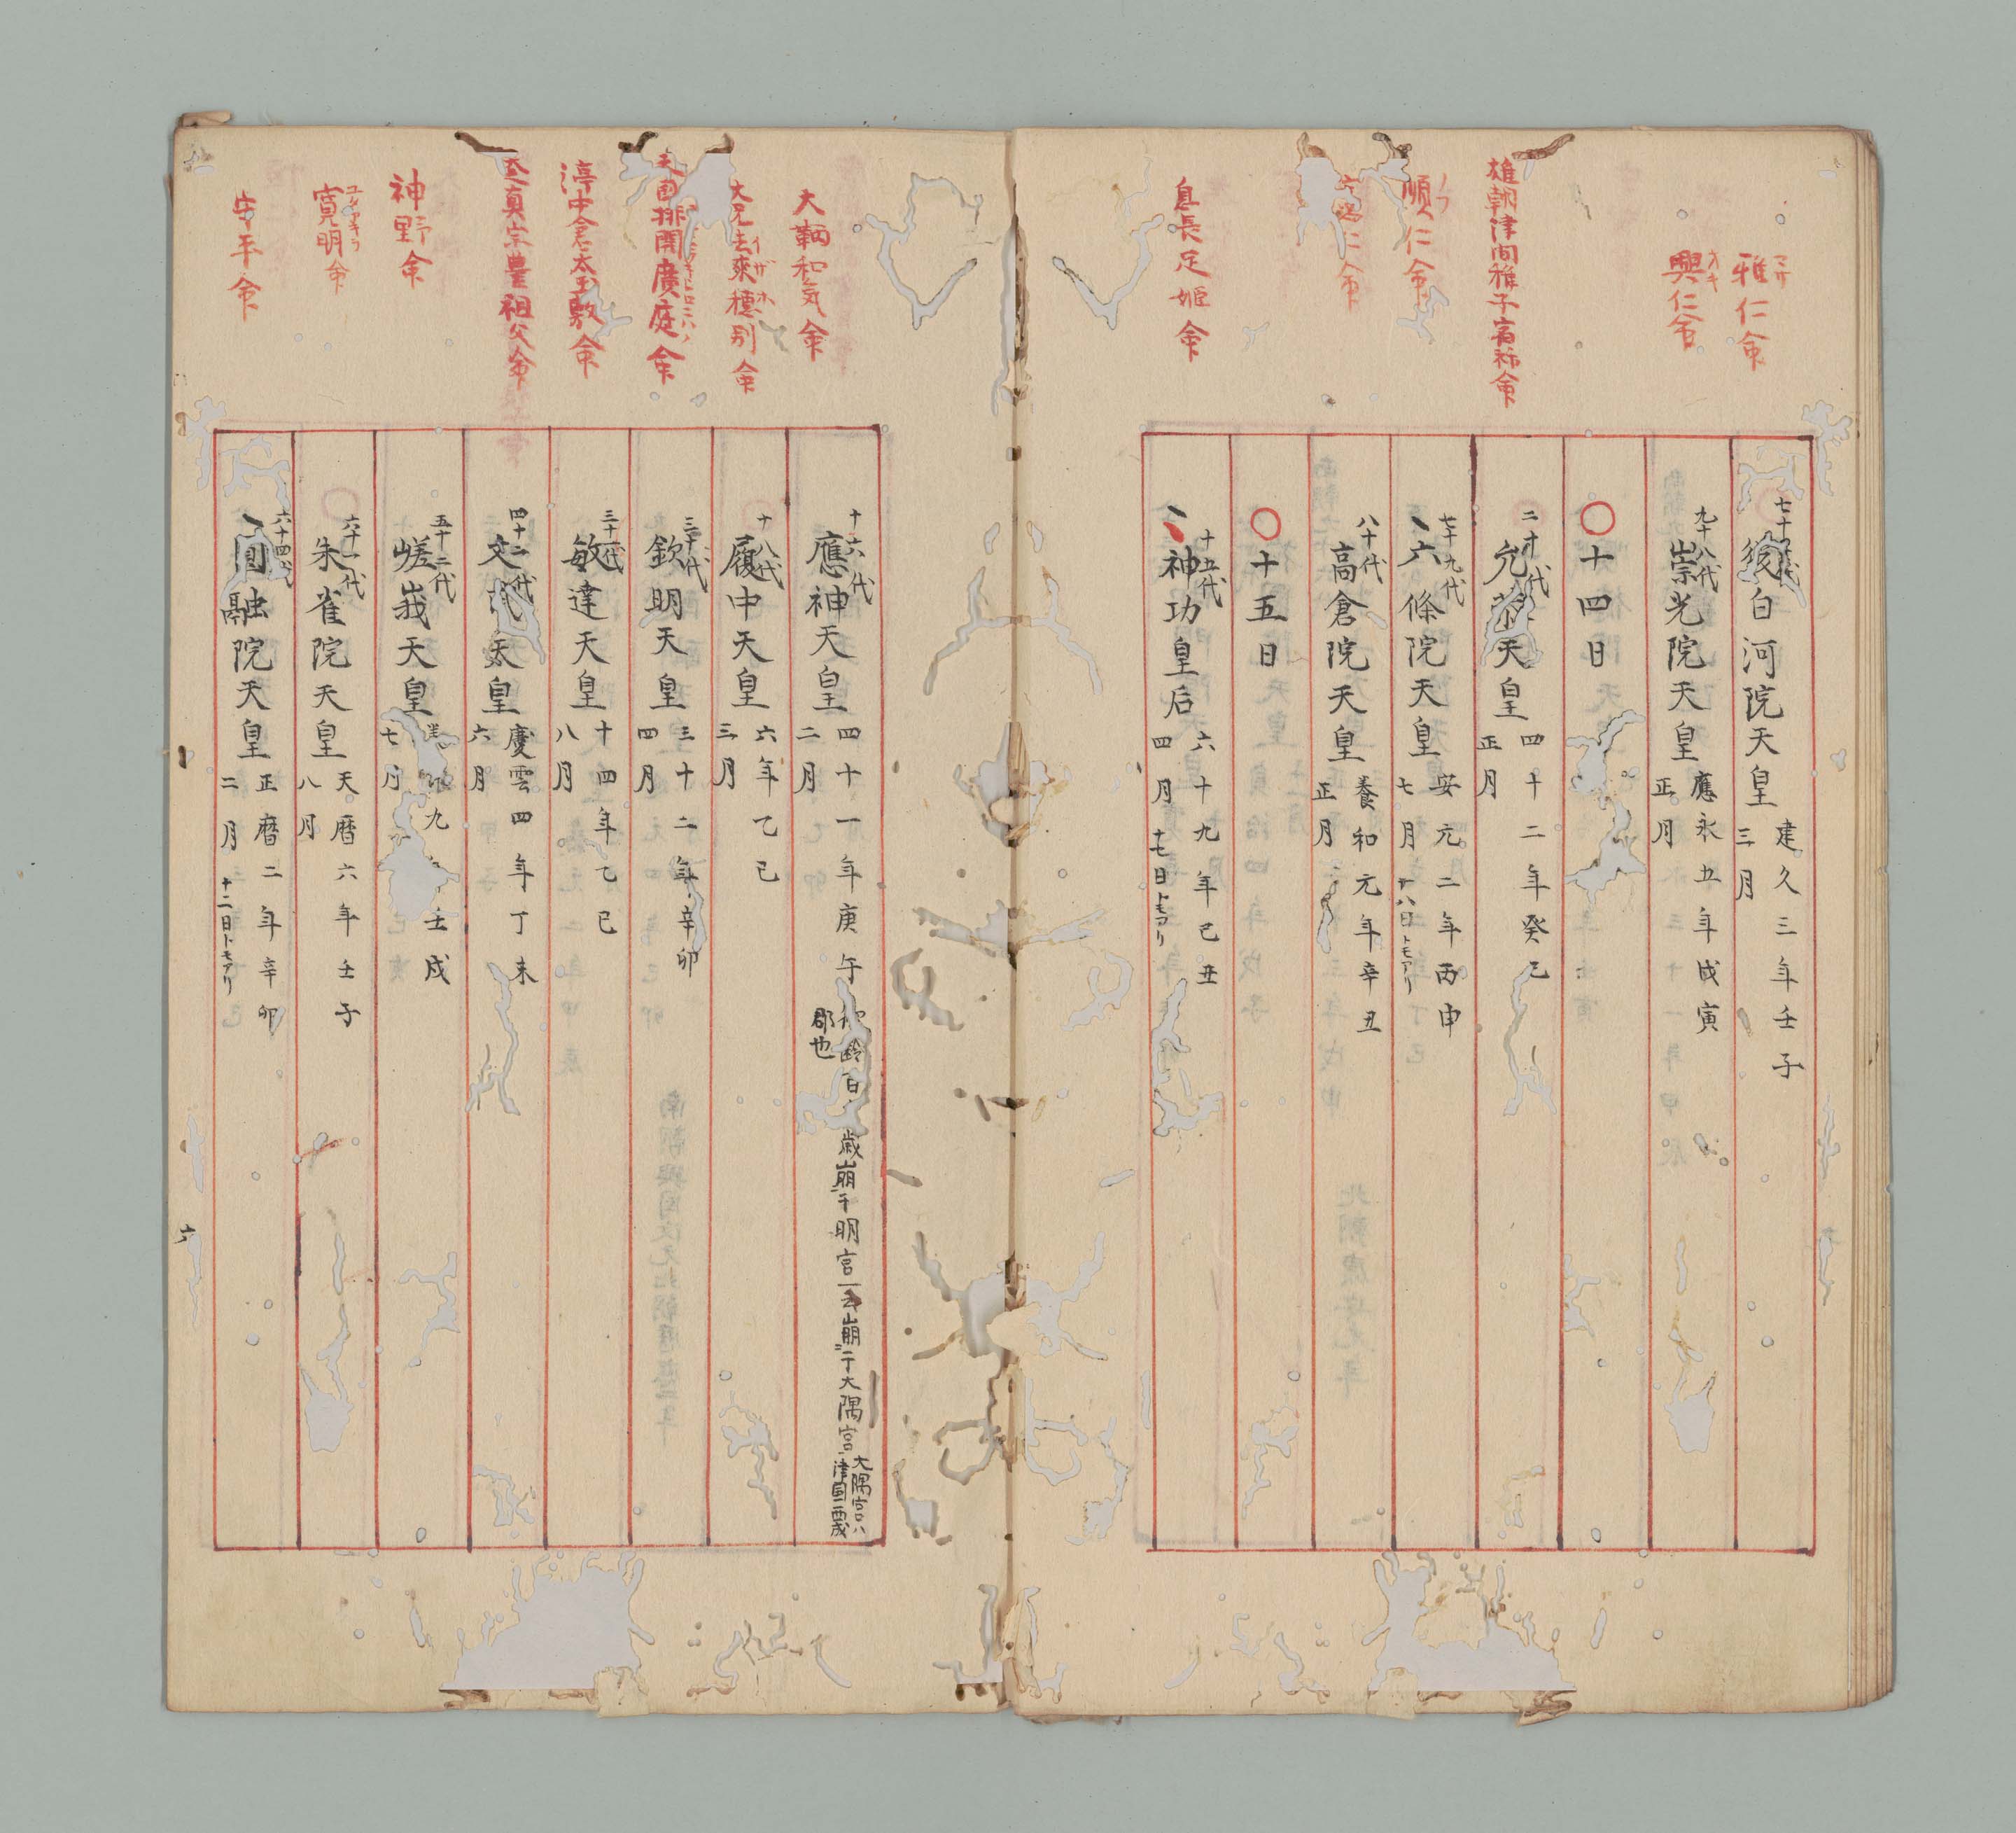 雅仁命
マサ
七十七代
後白河院天皇
建久三年壬子
三月
興仁命
オキ
九十八代
崇光院天皇
應永五年戊寅
正月
〇十四日
雄朝津間稚子宿祢命
二十代
允恭天皇
四十二年癸巳
正月
順仁命
七十九代
六條院天皇
安元二年丙申
七月 十八日トモアリ
仁命
八十代
高倉院天皇
養和元年辛丑
正月
〇十五日
息長足姫命
十五代
神功皇后
六十九年己丑
四月 十七日トモアリ
大鞆和気命
十六代
應神天皇
四十一年庚午
二月
齢百歳崩于明宮一云崩于大隅宮
郡也
大隅宮ハ
津国西成
大兄去来穂別命
イザホ
十八代
履中天皇
六年乙巳
三月
天国排開廣庭命
三十代
欽明天皇
三十二年辛卯
四月
渟中倉太玉敷命
三十一代
敏達天皇
十四年乙巳
八月
真宗豊祖父命
四十二代
文武天皇
慶雲四年丁未
六月
神野命
五十二代
嵯峨天皇
九壬戌
七月
寛明命
六十一代
朱雀院天皇
天暦六年壬子
八月
守平命
六十四代
圓融院天皇
正暦二年辛卯
二月 十二日トモアリ
六